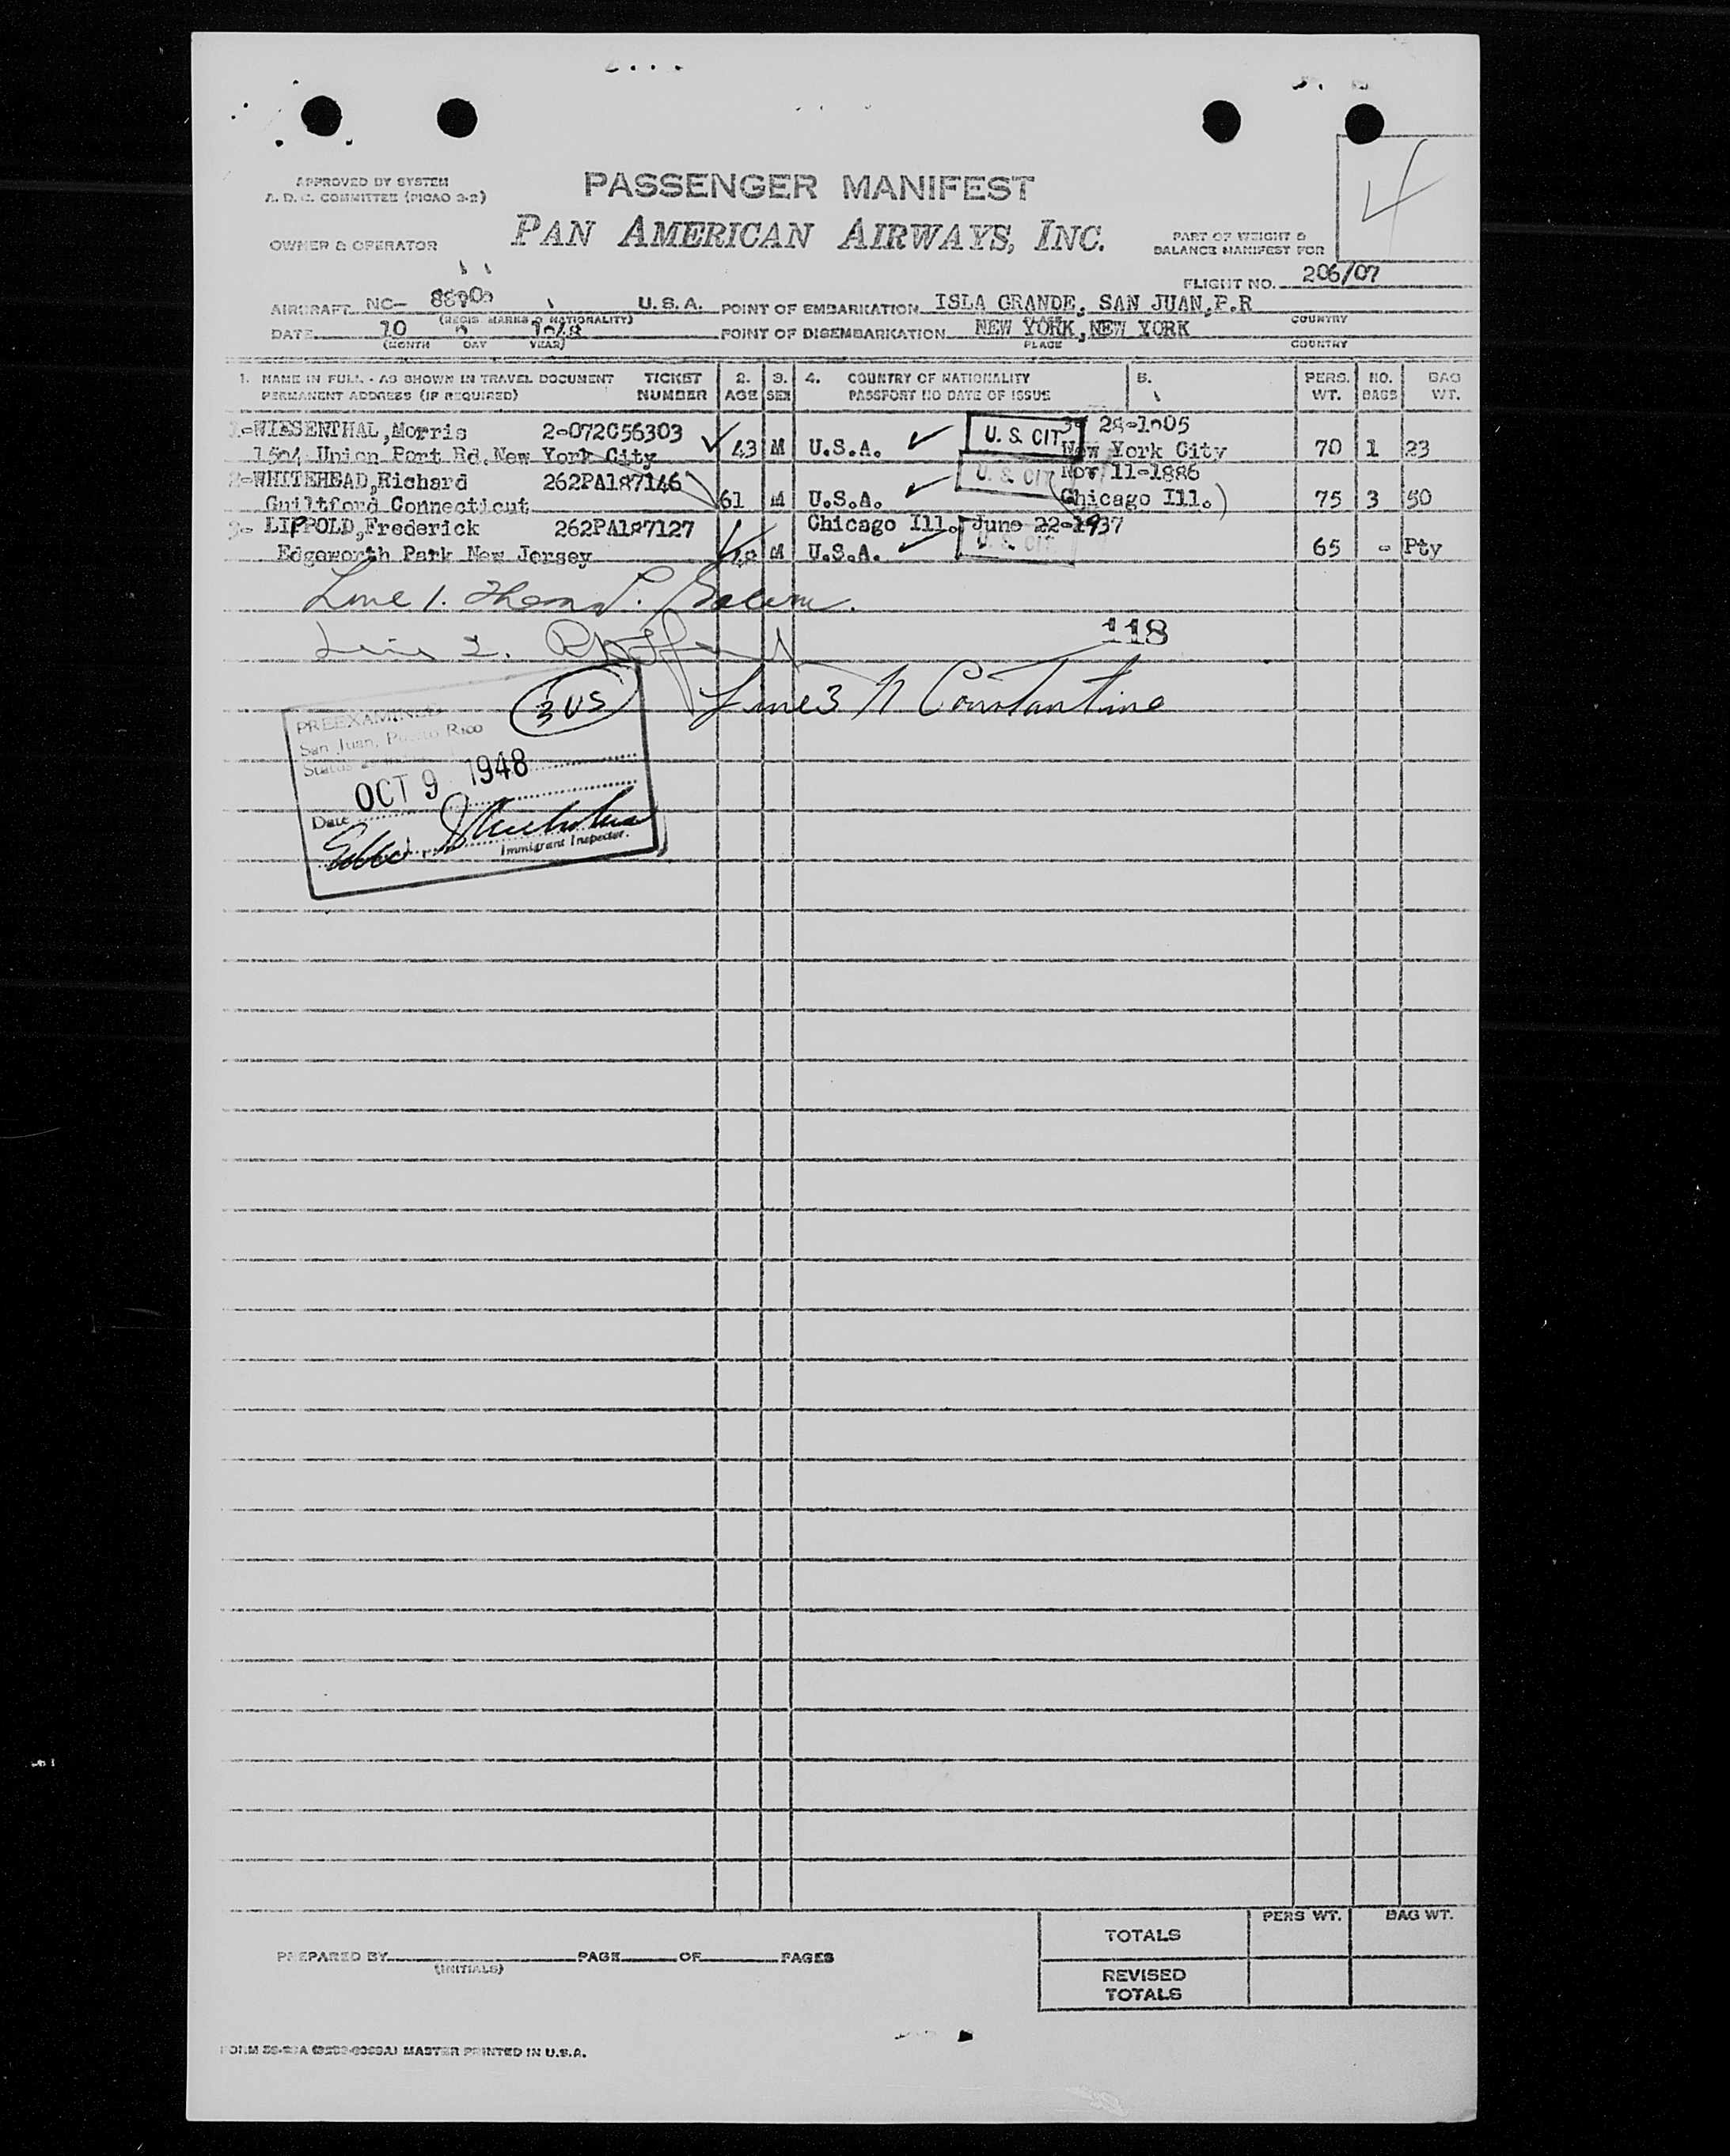 APPROVED BY SYSTEM
A. D. C. COMMITTEE (PICAO 2-2)
PASSENGER MANIFEST
4
OWNER & OPERATOR
PAN AMERICAN AIRWAYS, INC.
PART OF WEIGHT &
BALANCE MANIFEST FOR
FLIGHT NO. 206/07
AIRCRAFT NC- U. S. A. POINT OF EMBARKATION ISLA GRANDE, SAN JUAN, P.R
(REGIS. MARKS & NATIONALITY) PLACE COUNTRY
DATE 10 1948 POINT OF DISEMBARKATION NEW YORK, NEW YORK
(MONTH DAY YEAR) PLACE COUNTRY
1. NAME IN FULL - AS SHOWN IN TRAVEL DOCUMENT TICKET 2. 3. 4. COUNTRY OF NATIONALITY 5. PERS. NO. BAG
PERMANENT ADDRESS (IF REQUIRED) NUMBER AGE SEX PASSPORT NO DATE OF ISSUE WT. BAGS WT.
1-WIESENTHAL, Morris 2-072056303 28-1905
Union Port Rd. New York City 43 M U.S.A. U. S. CIT New York City 70 1 23
2-WHITEHEAD, Richard 262PA187146 U. S. CIT Nov 11-1886
Guiltford Connecticut 61 M U.S.A. (Chicago Ill.) 75 3 50
3- LIPPOLD, Frederick 262PA187127 Chicago Ill. June 22-1937
Edgeworth Park New Jersey M U.S.A. U. S. CIT 65 - Pty
Line 1.
Line 2.
118
3 US
Line 3 N Constantine
PREEXAMINED
San Juan, Puerto Rico
Status
OCT 9 1948
Date
Immigrant Inspector.
PERS WT. BAG WT.
TOTALS
PREPARED BY PAGE OF PAGES
(INITIALS)
REVISED
TOTALS
MASTER PRINTED IN U.S.A.